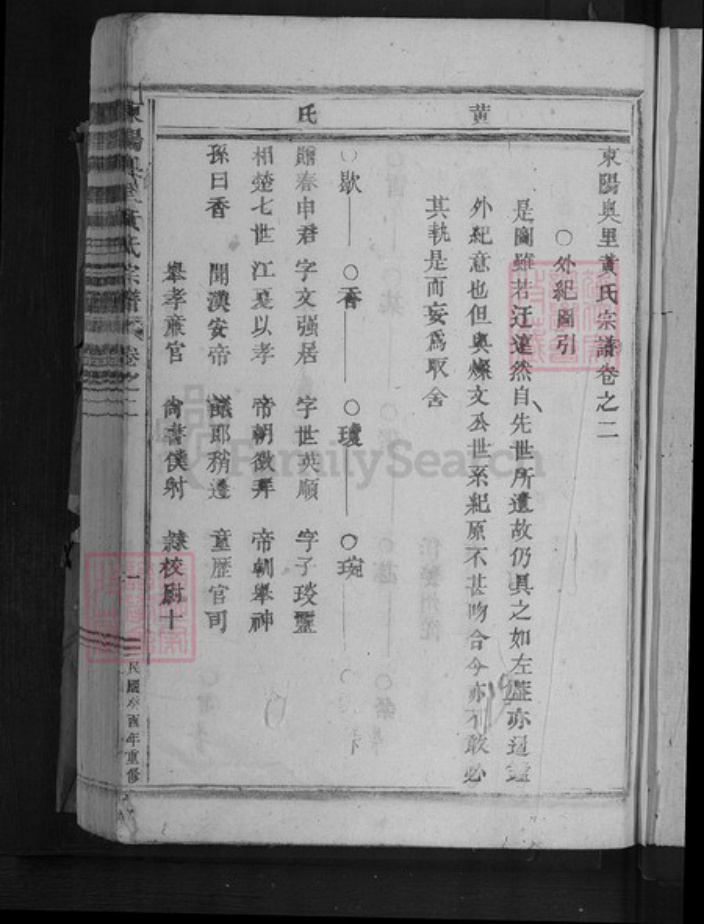 黄氏
東陽奥里黄氏宗譜卷之二
○外紀圖引
是圖雖若迂遠然自先世所遺故仍具之如左
外紀意也但與燦文公世系紀原不甚吻合今亦不敢必
其孰是而妄爲取舍
○歇 ○香 ○瓊 ○琬
贈春申君 字文强居 字世英順 字子琰璽
相楚七世 江夏以孝 帝朝徵拜 帝朝舉神
孫曰香 聞漢安帝 議郎稍遷 童歷官司
舉孝廉官 尙書僕射 隸校尉十
東陽奥里黄氏宗譜 卷之二
一
民國癸酉年重修
FamilySearch